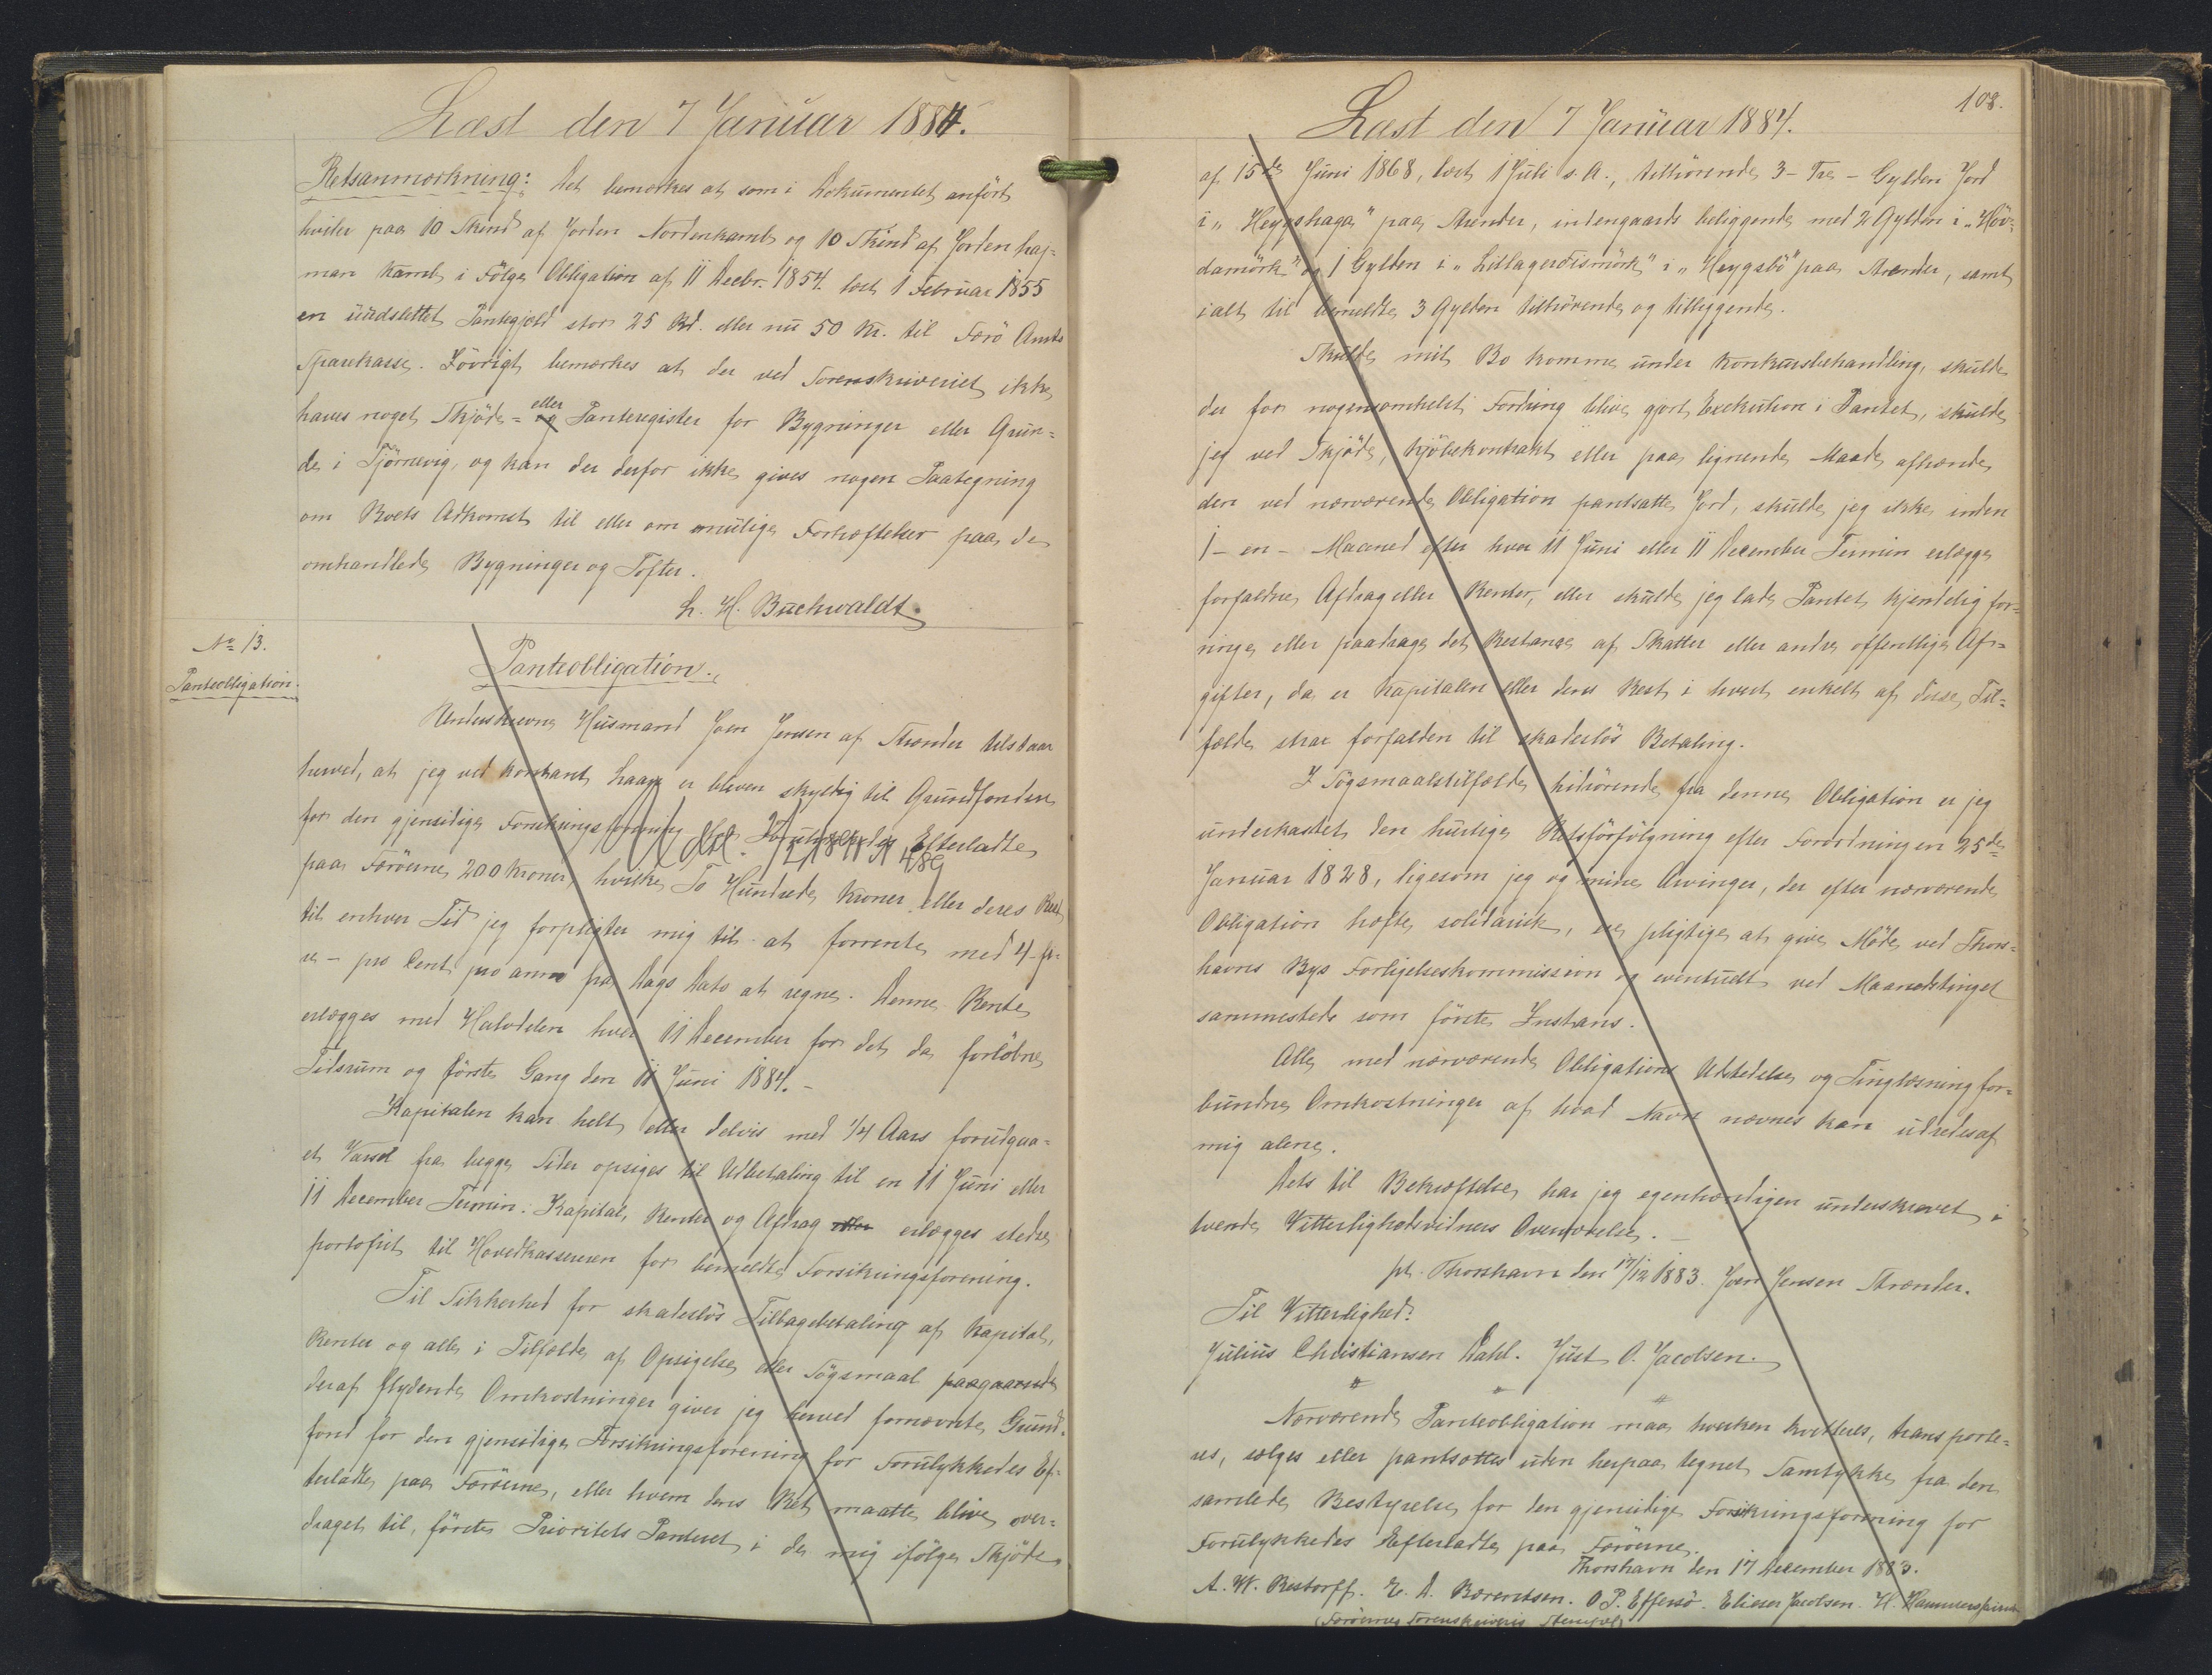 Læst den 7 Januar 1884.
Retsanmærkning: Det bemærkes at som i Dokumentet anført
hviler paa 10 Skind af Jorden Nordenkamb og 10 Skind af Jorden haj=
man Kamb i Følge Obligation af 11 Decbr. 1854 læst 1 Februar 1855
en uudslettet Pantegjæld stor 25 Rd. eller nu 50 Kr. til Færø Amts
Sparekasse. Iøvrigt bemærkes at der ved Sorenskriveriet ikke
haves noget Skjøde= eller Panteregister for Bygninger eller Grun=
de i Tjørnevig, og kan der derfor ikke gives nogen Paategning
om Boets Adkomst til eller om mulige Forhæftelser paa de
omhandlede Bygninger og Tofter.
L. H. Buchwaldt
No 13.
Panteobligation.
Panteobligation.
Underskrevne Husmand Joen Jensen af Strænder tilstaar
herved, at jeg ved kontant Laan er bleven skyldig til Grundfonden
for den gjensidige Forsikringsforening for Forulykkedes Efterladte
paa Færøerne 200 Kroner, hvilke To Hundrede Kroner eller deres Rest
til enhver Tid jeg forpligter mig til at forrente med 4- fi=
re - pro Cent pro anno fra Dags Dato at regne. Denne Rente
erlægges med Halvdelen hver 11 December for det da forløbne
Tidsrum og første Gang den 11 Juni 1884. -
Kapitalen kan helt eller delvis med 1/4 Aars forudgaa=
et Varsel fra begge Sider opsiges til Udbetaling til en 11 Juni eller
11 December Termin. Kapital, Renter og Afdrag erlægges stedse
portofrit til Hovedkassereren for bemeldte Forsikringsforening.
Til Sikkerhed for skadesløs Tilbagebetaling af Kapital,
Renter og alle i Tilfælde af Opsigelse eller Søgsmaal paagaaende
deraf flydende Omkostninger giver jeg herved fornævnte Grund=
fond for den gjensidige Forsikringsforening for Forulykkedes Ef=
terladte paa Færøerne, eller hvem dens Ret maatte blive over=
draget til, første Prioritets Panteret i de mig ifølge Skjøde
108.
Læst den 7 Januar 1884.
af 15de Juni 1868, læst 1 Juli s. A., tilhørende 3 - Tre - Gylden Jord
i "Heygshaga" paa Strænder, indengaards beliggende med 2 Gylden i "Høv=
damørk" og 1 Gylden i "Litlagerdismørk" i "Heygsbø" paa Strænder, samt
ialt til bemeldte 3 Gylden tilhørende og tilliggende.
Skulde mit Bo komme under Konkursbehandling, skulde
der for nogensomhelst Fordring blive gjort Exekution i Pantet, skulde
jeg ved Skjøde, Kjøbekontrakt eller paa lignende Maade afhænde
den ved nærværende Obligation pantsatte Jord, skulde jeg ikke inden
1 - en - Maaned efter hver 11 Juni eller 11 December Termin erlægge
forfaldne Afdrag eller Renter, eller skulde jeg lade Pantet kjendelig for=
ringe eller paadrage det Restance af Skatter eller andre offentlige Af=
gifter, da er Kapitalen eller dens Rest i hvert enkelt af disse Til=
fælde strax forfalden til skadesløs Betaling.
I Søgsmaalstilfælde hidrørende fra denne Obligation er jeg
underkastet den hurtige Retsforfølgning efter Forordningen 25de
Januar 1828, ligesom jeg og mine Arvinger, der efter nærværende
Obligation hæfte solidarisk, ere pligtige at give Møde ved Thors=
havns Bys Forligelseskommission og eventuelt ved Maanedstinget
sammesteds som første Instans.
Alle med nærværende Obligations Udstedelse og Tinglæsning for=
bundne Omkostninger af hvad Navn nævnes kan udredes af
mig alene.
Dets til Bekræftelse har jeg egenhændigen underskrevet i
tvende Vitterlighedsvidners Overværelse. -
pt. Thorshavn den 17/12 1883. Joen Jensen Strænder.
Til Vitterlighed:
Julius Christiansen Dahl. Just O. Jacobsen.
Nærværende Panteobligation maa hverken kvitteres, transporte=
res, sælges eller pantsættes uden herpaa tegnet Samtykke fra den
samlede Bestyrelse for den gjensidige Forsikringsforening for
Forulykkedes Efterladte paa Færøerne.
Thorshavn den 17 December 1883.
A. W. Restorff. E. A. Bærentsen. O. P. Effersø. Elieser Jacobsen. H.
(Færøernes Sorenskriveris Stempel)